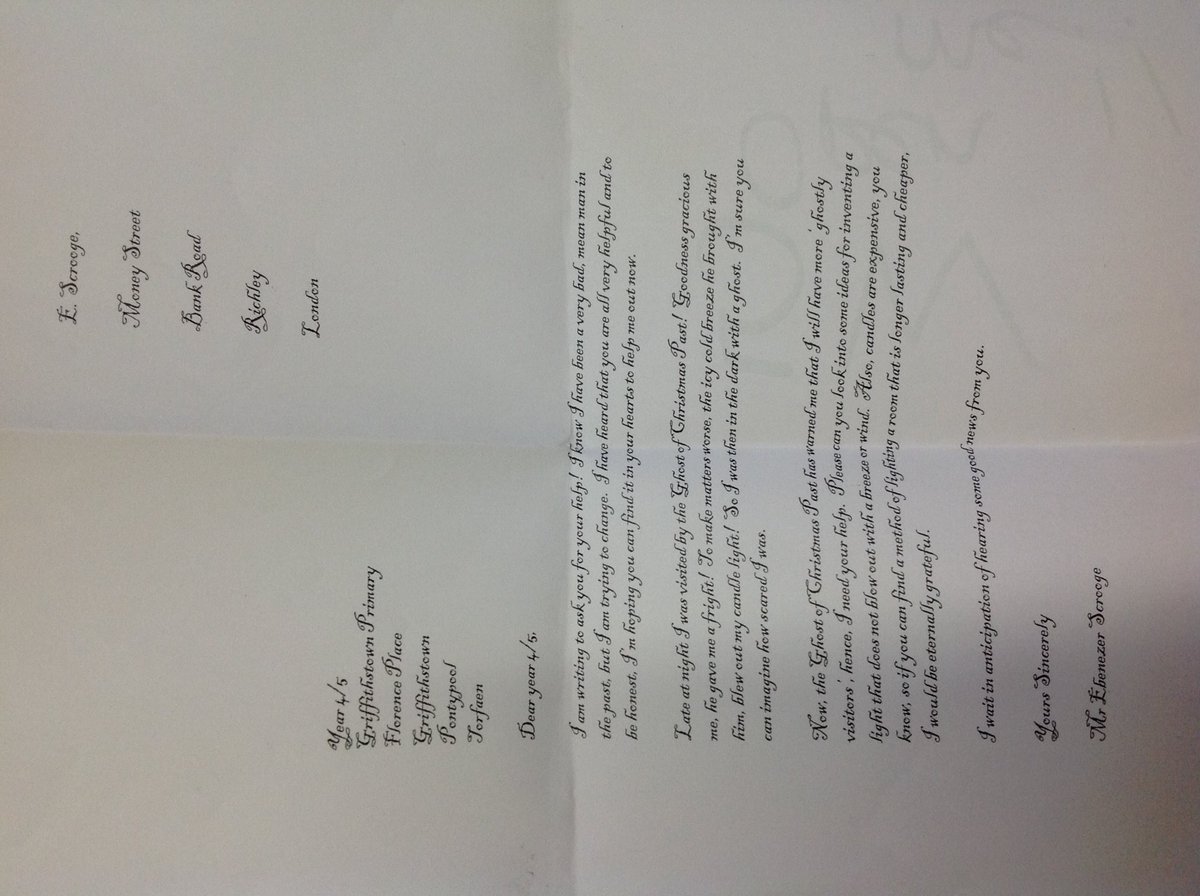 E. Scrooge,
Money Street
Bank Road
Richley
London
Year 4/5
Griffithstown Primary
Florence Place
Griffithstown
Pontypool
Torfaen
Dear year 4/5,
I am writing to ask you for your help! I know I have been a very bad, mean man in
the past, but I am trying to change. I have heard that you are all very helpful and to
be honest, I'm hoping you can find it in your hearts to help me out now.
Late at night I was visited by the Ghost of Christmas Past! Goodness gracious
me, he gave me a fright! To make matters worse, the icy cold breeze he brought with
him, blew out my candle light! So I was then in the dark with a ghost. I'm sure you
can imagine how scared I was.
Now, the Ghost of Christmas Past has warned me that I will have more 'ghostly
visitors', hence, I need your help. Please can you look into some ideas for inventing a
light that does not blow out with a breeze or wind. Also, candles are expensive, you
know, so if you can find a method of lighting a room that is longer lasting and cheaper,
I would be eternally grateful.
I wait in anticipation of hearing some good news from you.
Yours Sincerely
Mr Ebenezer Scrooge